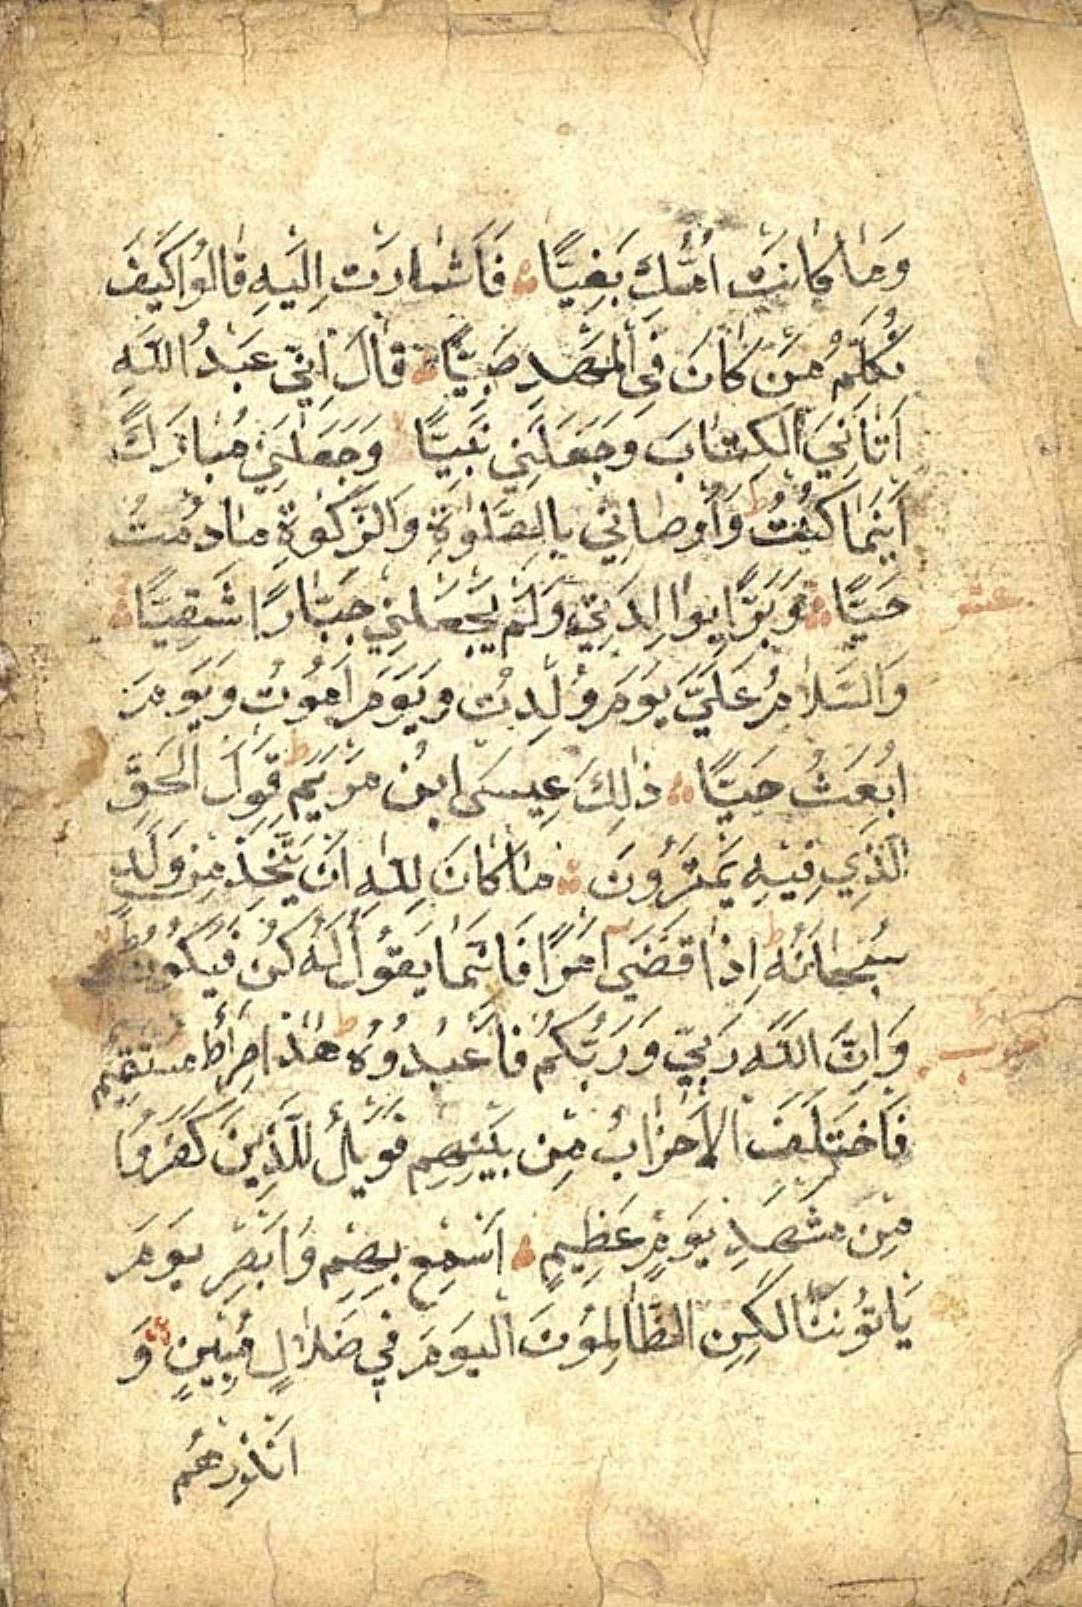 وَمَا كَانَتْ اُمُّكِ بَغِيًّا ۞ فَاَشَارَتْ اِلَيْهِ قَالُوا كَيْفَ
نُكَلِّمُ مَنْ كَانَ فِي الْمَهْدِ صَبِيًّا ۞ قَالَ اِنِّي عَبْدُ اللّٰهِ
اٰتَانِيَ الْكِتَابَ وَجَعَلَنِي نَبِيًّا وَجَعَلَنِي مُبَارَكًا
اَيْنَمَا كُنْتُ ط وَاَوْصَانِي بِالصَّلٰوةِ وَالزَّكٰوةِ مَادُمْتُ
حَيًّا ۞ وَبَرًّا بِوَالِدَتِي وَلَمْ يَجْعَلْنِي جَبَّارًا شَقِيًّا ۞
عشر
وَالسَّلَامُ عَلَيَّ يَوْمَ وُلِدْتُ وَيَوْمَ اَمُوتُ وَيَوْمَ
اُبْعَثُ حَيًّا ۞ ذٰلِكَ عِيسَى ابْنُ مَرْيَمَ ط قَوْلَ الْحَقِّ
الَّذِي فِيْهِ يَمْتَرُوْنَ ۞ مَا كَانَ لِلّٰهِ اَنْ يَتَّخِذَ مِنْ وَلَدٍ
سُبْحَانَهُ ط اِذَا قَضَى اَمْرًا فَاِنَّمَا يَقُوْلُ لَهُ كُنْ فَيَكُوْنُ ط
وَاِنَّ اللّٰهَ رَبِّي وَرَبُّكُمْ فَاعْبُدُوْهُ ط هٰذَا صِرَاطٌ مُسْتَقِيْمٌ
فَاخْتَلَفَ الْاَحْزَابُ مِنْ بَيْنِهِمْ فَوَيْلٌ لِلَّذِيْنَ كَفَرُوْا
مِنْ مَشْهَدِ يَوْمٍ عَظِيْمٍ ۞ اَسْمِعْ بِهِمْ وَاَبْصِرْ يَوْمَ
يَاْتُوْنَنَا لٰكِنِ الظَّالِمُوْنَ الْيَوْمَ فِي ضَلَالٍ مُبِيْنٍ وَ
اَنْذِرْهُمْ